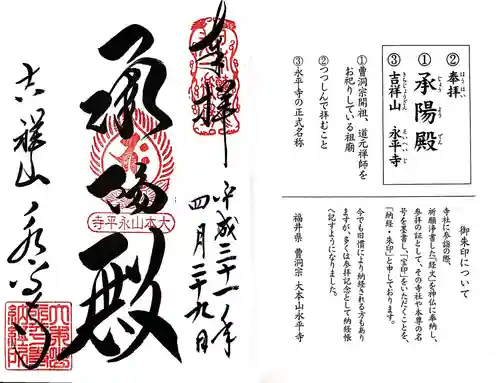 ②奉拝
ほうはい
①承陽殿
じょうようでん
③吉祥山　永平寺
きちじょうざん　えいへいじ
①曹洞宗開祖、道元禅師を
お祀りしている祖廟
②つつしんで拝むこと
③永平寺の正式名称
御朱印について
寺社に参詣の際、
祈願浄書した「経文」を神仏に奉納し、
参拝の証として、その寺社や本尊の名
号を墨書し、「宝印」をいただくことを、
「納経・朱印」と申しております。
今でも旧慣により納経される方もあり
ますが、多くは参拝記念として納経帳
へ記すようになりました。
福井県　曹洞宗　大本山永平寺
奉拝
平成三十一年
四月二十九日
承陽殿
大本山永平寺
吉祥山　永平寺